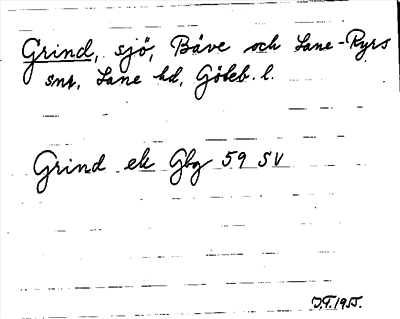 Grind, sjö, Bäve och Lane-Ryrs
snr, Lane hd, Göteb. l.
Grind ek Gbg 59 SV
1955.